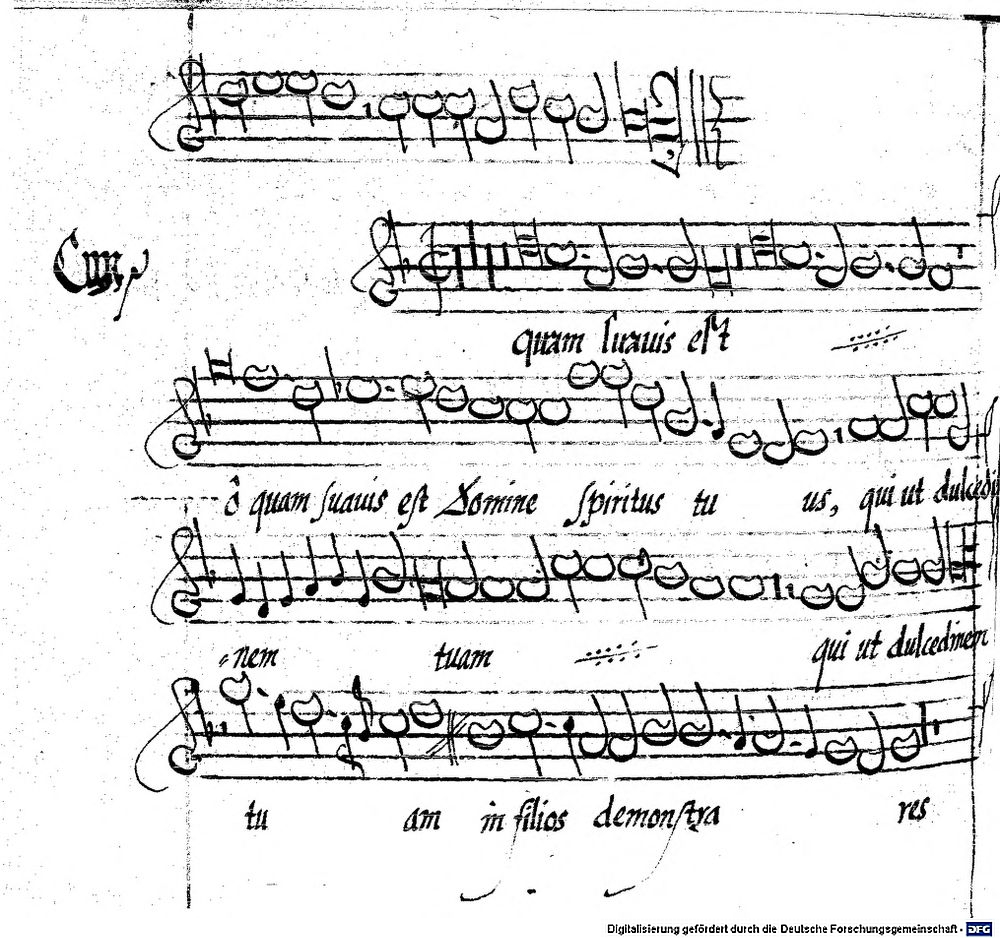 Cum
quam suauis est
ô quam suauis est Domine spiritus tu us, qui ut dulcedi
nem tuam qui ut dulcedinem
tu am in filios demonstra res
Digitalisierung gefördert durch die Deutsche Forschungsgemeinschaft - DFG